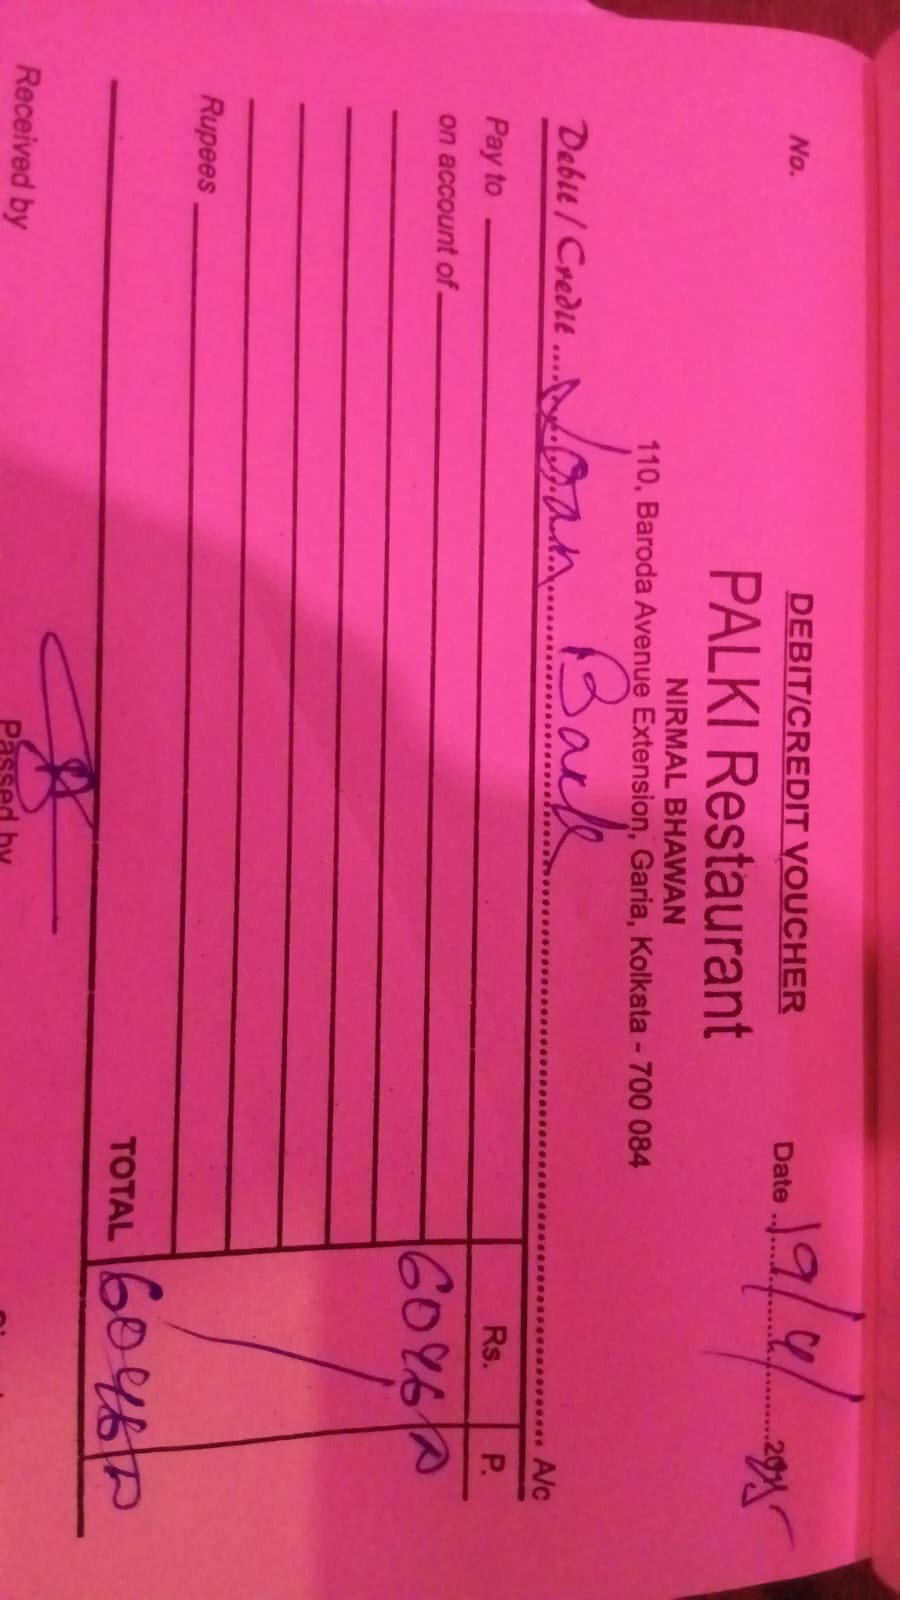 No.
DEBIT/CREDIT VOUCHER
Date 19/4/2025
PALKI Restaurant
NIRMAL BHAWAN
110, Baroda Avenue Extension, Garia, Kolkata - 700 084
Debit / Credit Loan Back A/c
Pay to Rs. P.
on account of
Rupees
TOTAL
Received by
Passed by